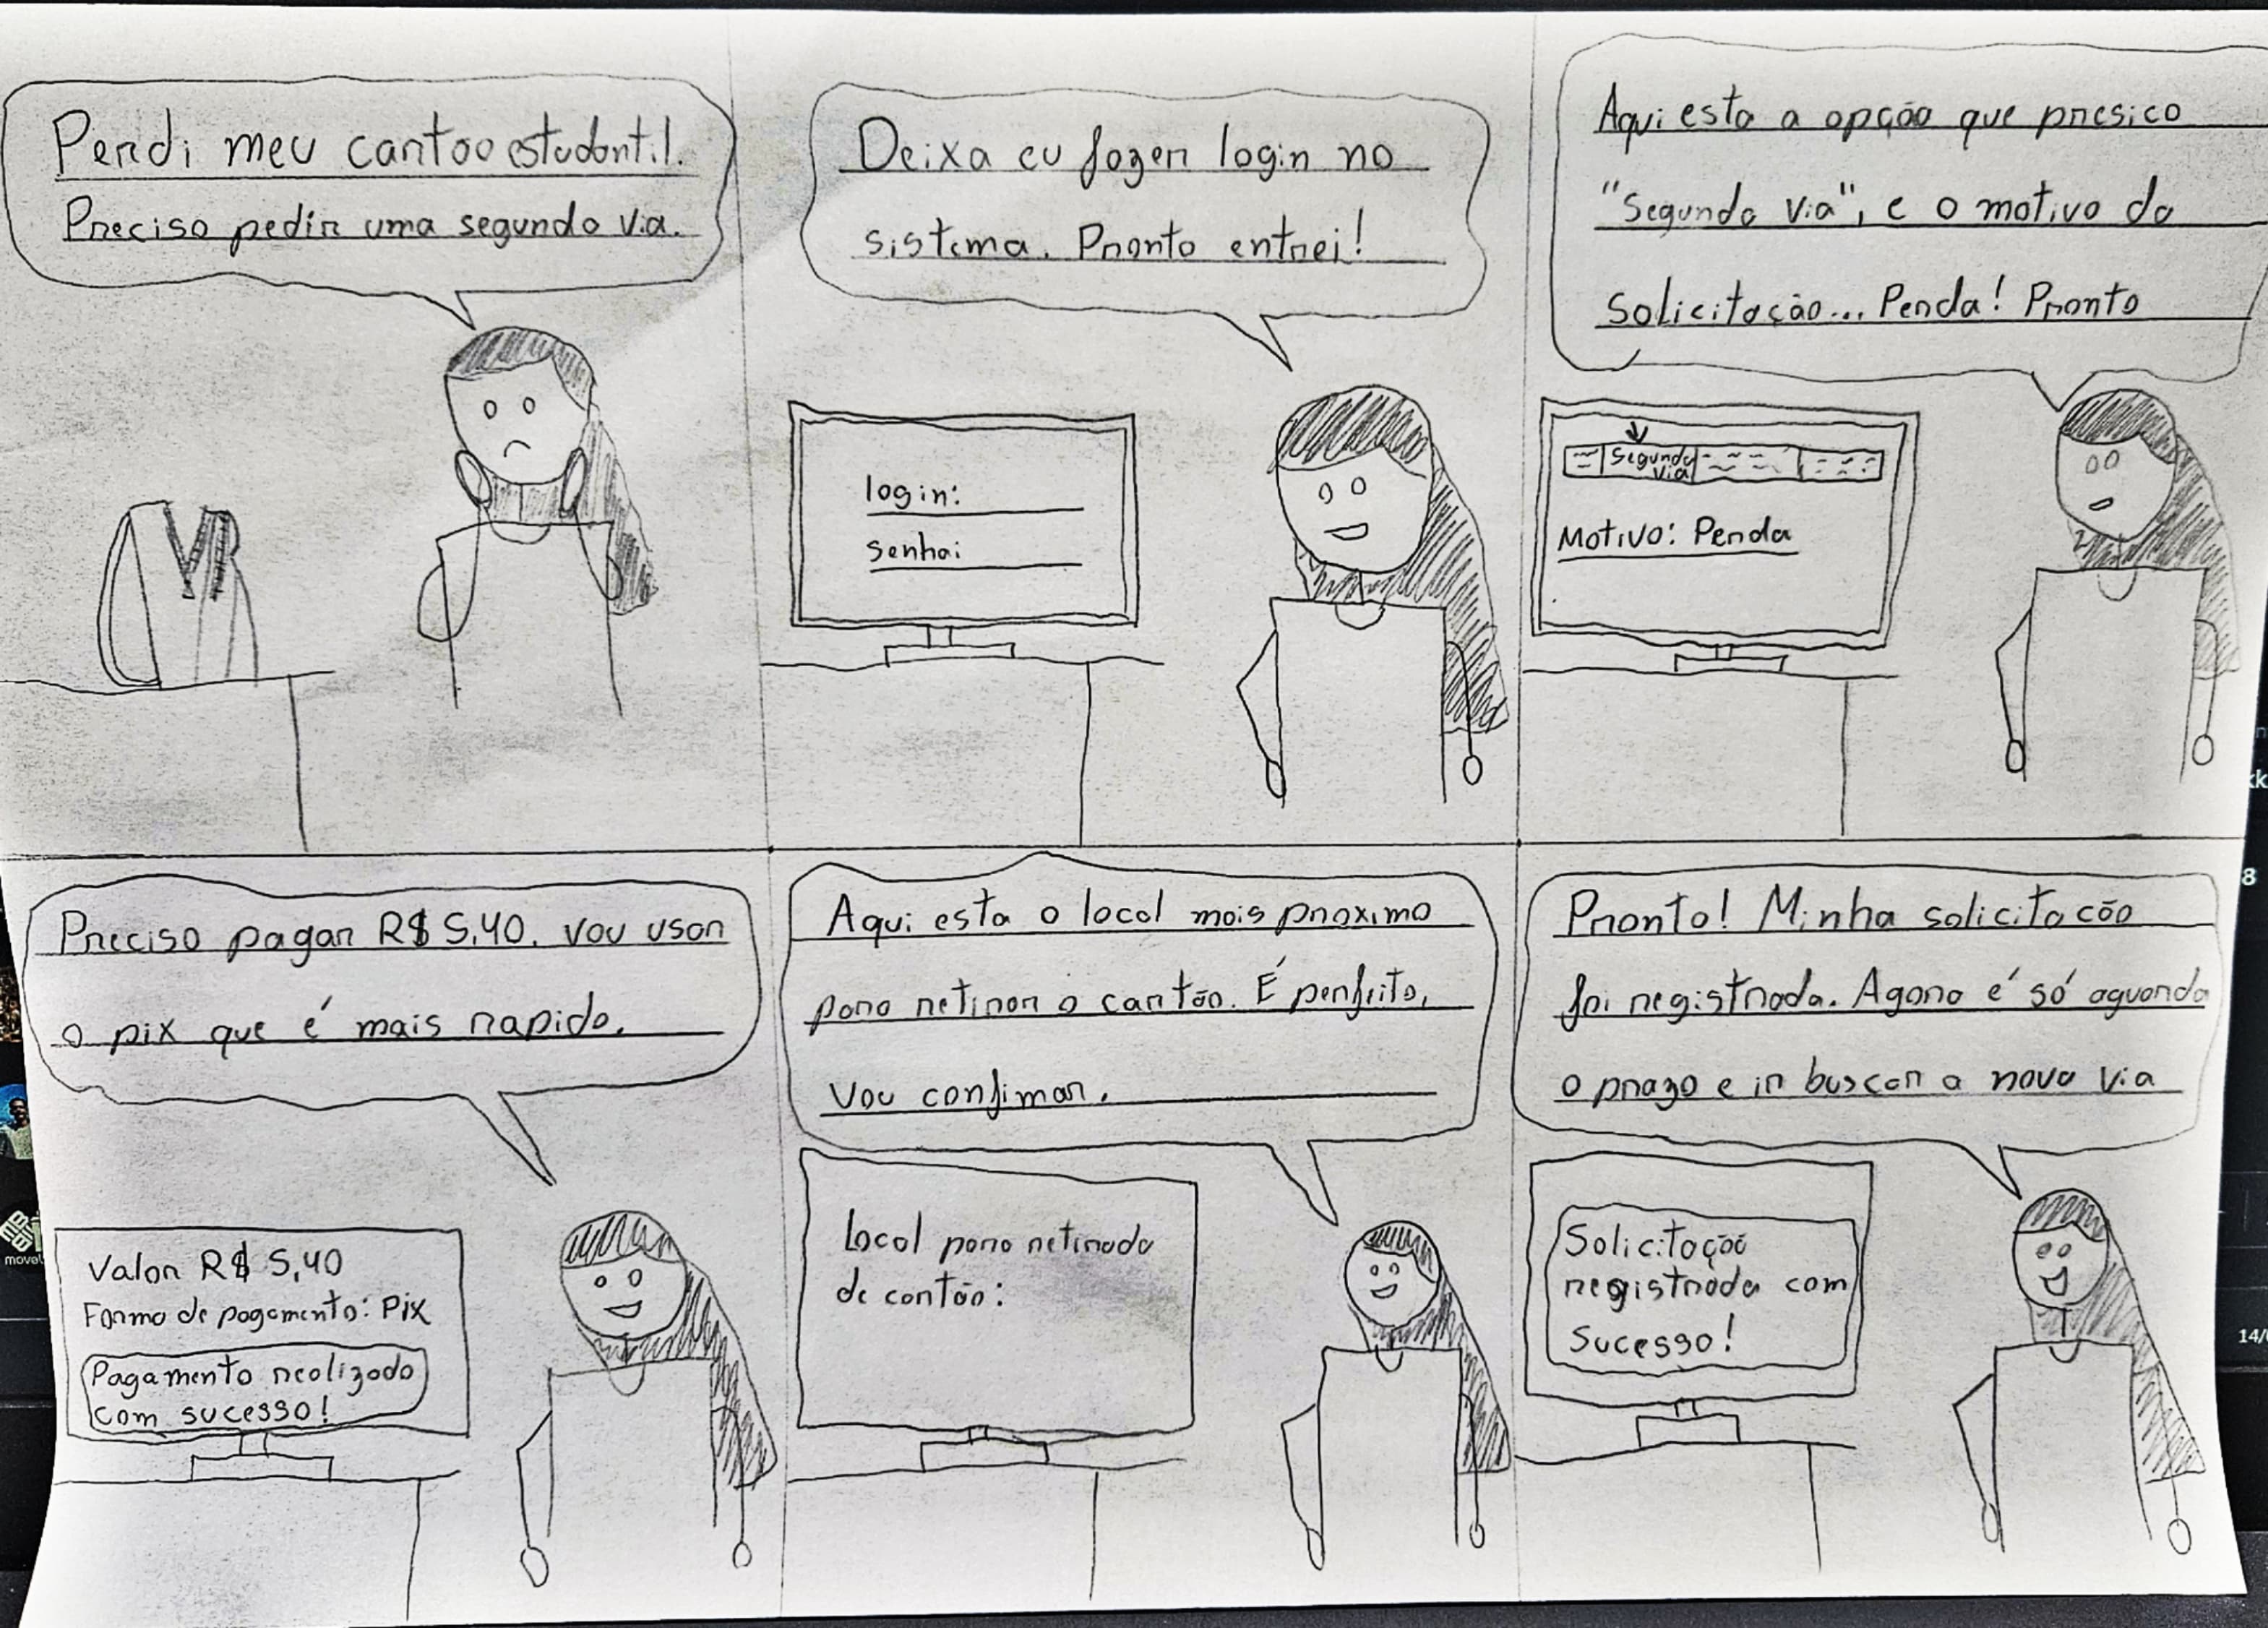 Perdi meu cartão estudantil.
Preciso pedir uma segunda via.
Deixa eu fazer login no
sistema. Pronto entrei!
login:
senha:
Aqui esta a opção que presico
"Segunda via", e o motivo da
Solicitação... Perda! Pronto
Segunda
via
Motivo: Perda
Preciso pagar R$ 5,40. vou usar
o pix que é mais rapido.
Valor R$ 5,40
Forma de pagamento: Pix
Pagamento realizado
com sucesso!
Aqui esta o local mais proximo
para retirar o cartão. É perfeito,
vou confimar.
Local para retirada
de cartão:
Pronto! Minha solicitacão
foi registrada. Agora é só aguarda
o prazo e ir buscar a nova via
Solicitação
registrada com
sucesso!
kk
8
14/